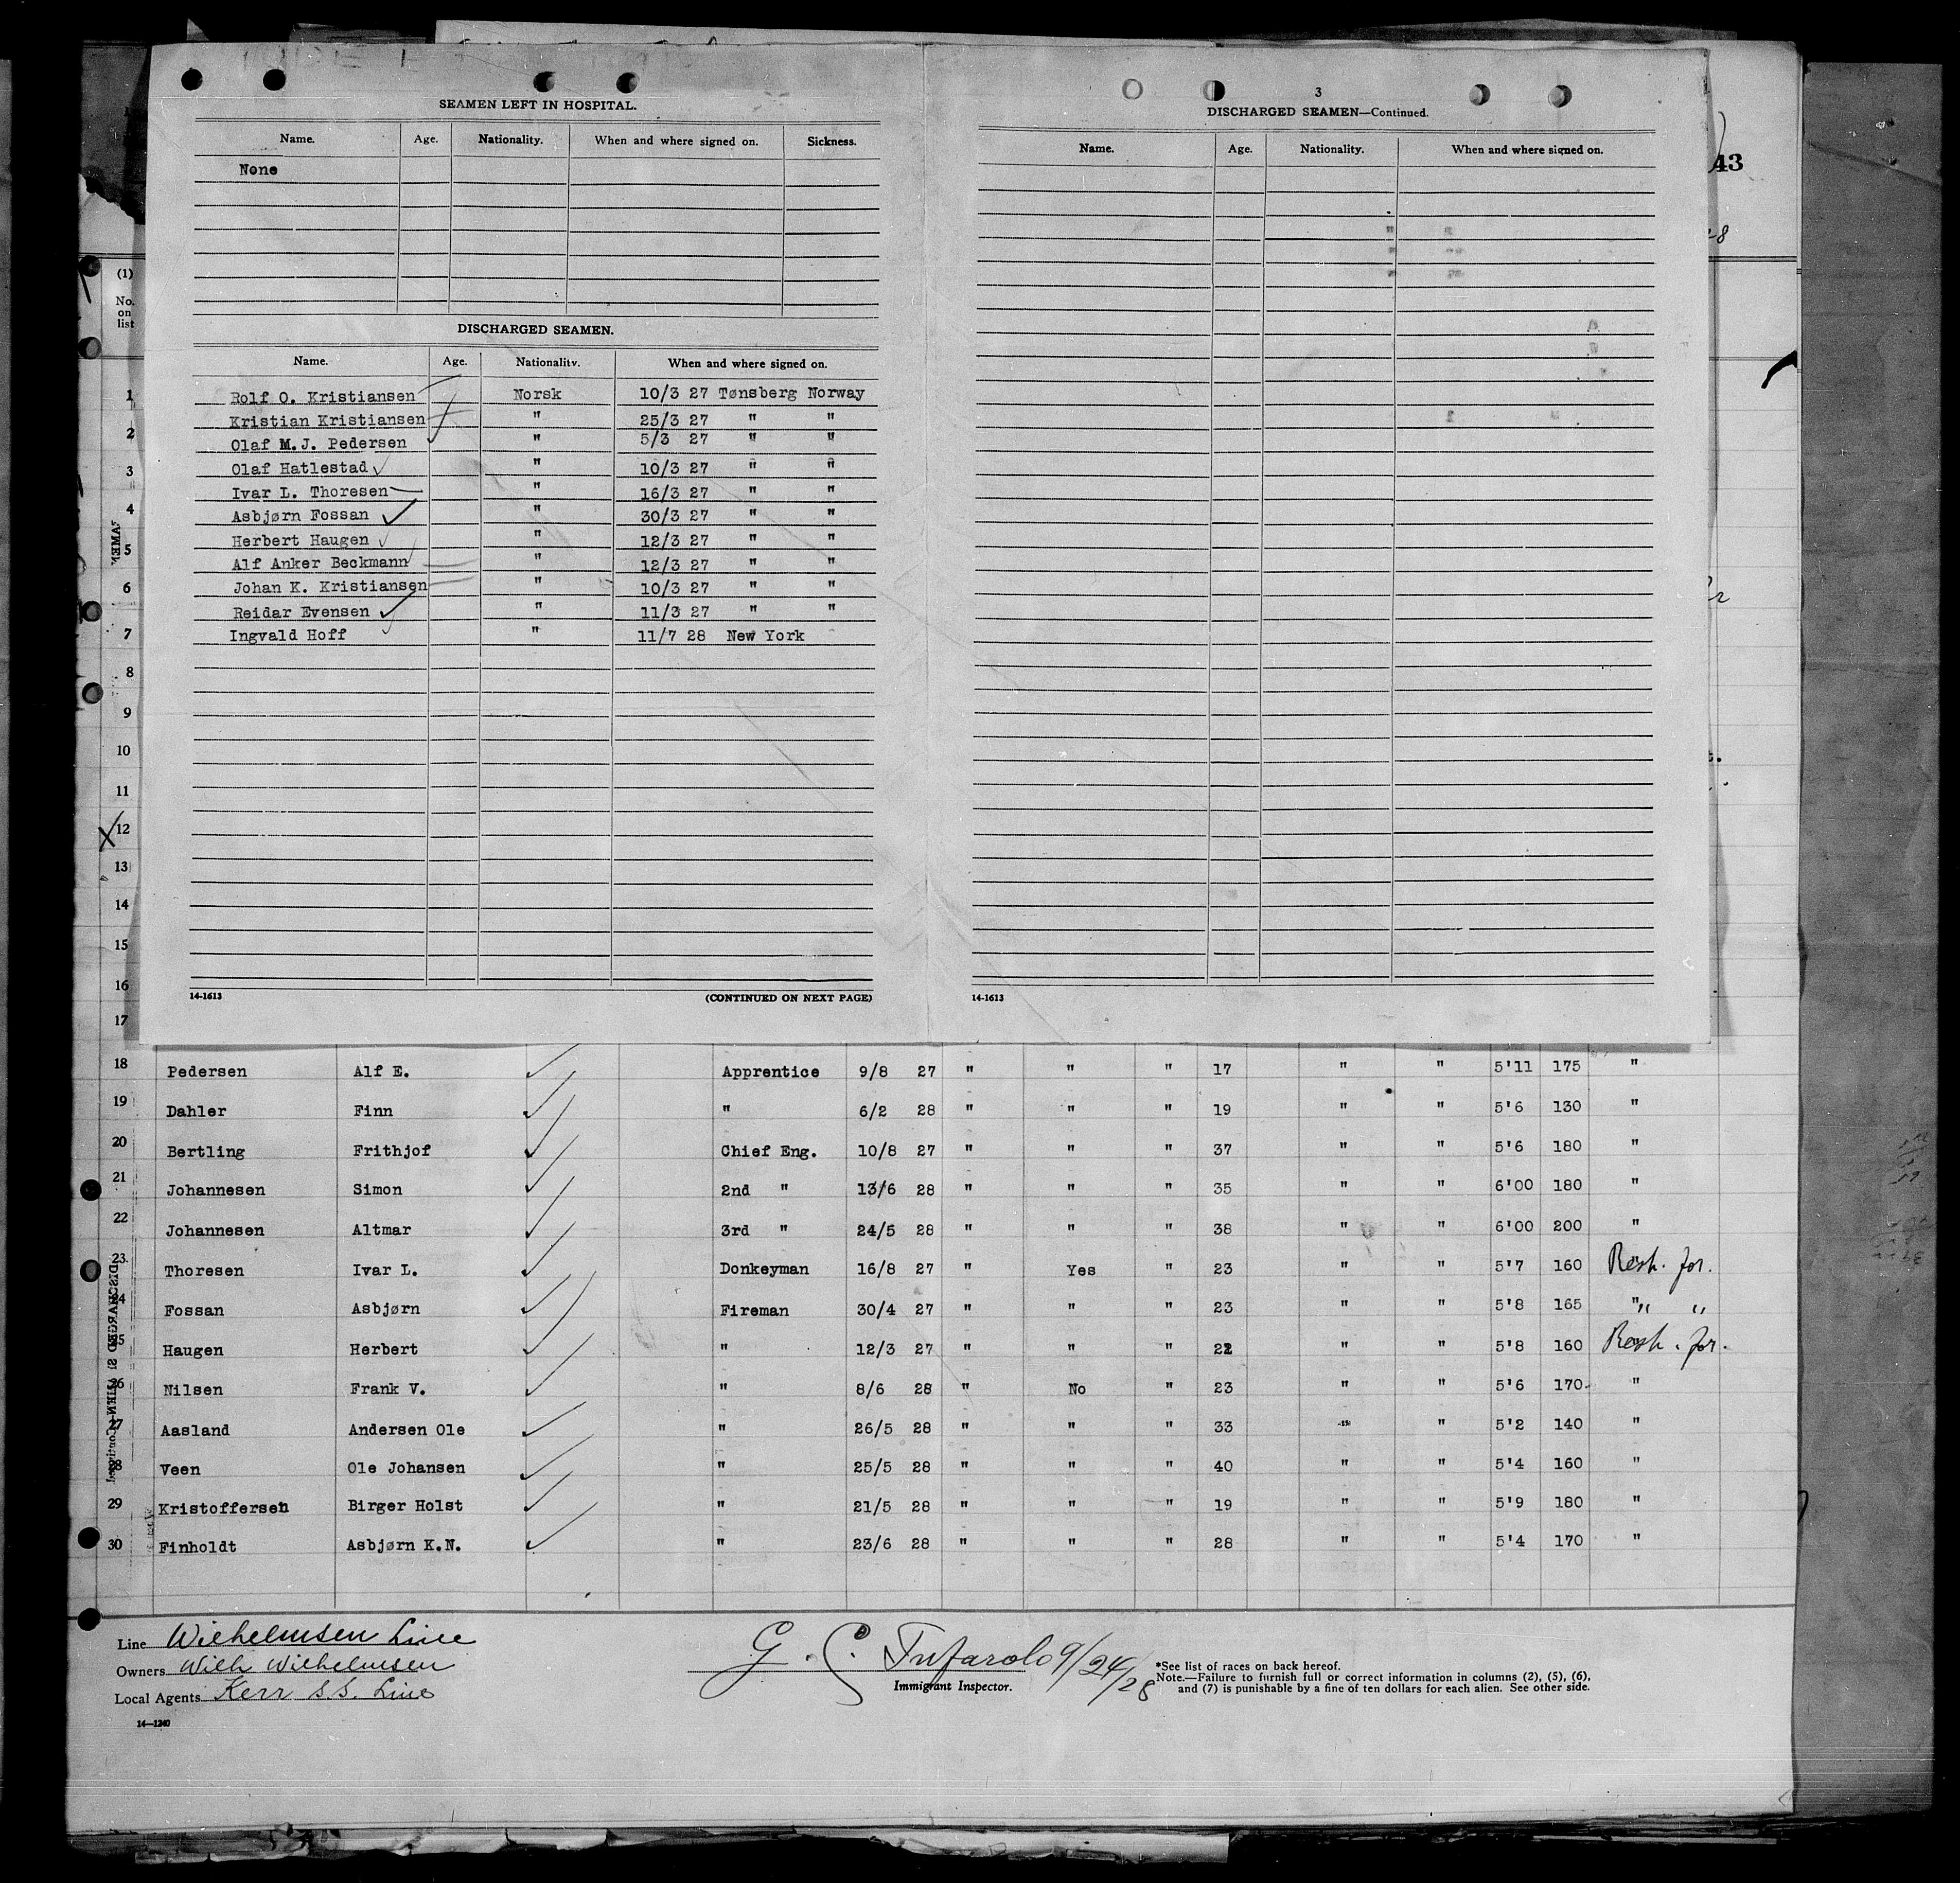 SEAMEN LEFT IN HOSPITAL.
Name. Age. Nationality. When and where signed on. Sickness.
None
DISCHARGED SEAMEN.
Name. Age. Nationality. When and where signed on.
Rolf O. Kristiansen Norsk 10/3 27 Tønsberg Norway
Kristian Kristiansen " 25/3 27 " "
Olaf M.J. Pedersen " 5/3 27 " "
Olaf Hatlestad " 10/3 27 " "
Ivar L. Thoresen " 16/3 27 " "
Asbjørn Fossan " 30/3 27 " "
Herbert Haugen " 12/3 27 " "
Alf Anker Beckmann " 12/3 27 " "
Johan K. Kristiansen " 10/3 27 " "
Reidar Evensen " 11/3 27 " "
Ingvald Hoff " 11/7 28 New York
14-1613 (CONTINUED ON NEXT PAGE)
3
DISCHARGED SEAMEN—Continued.
Name. Age. Nationality. When and where signed on.
14-1613
43
(1)
No.
on
list
1
2
3
4
5
6
7
8
9
10
11
12
13
14
15
16
17
18 Pedersen Alf E. Apprentice 9/8 27 " " " 17 " " 5'11 175 "
19 Dahler Finn " 6/2 28 " " " 19 " " 5'6 130 "
20 Bertling Frithjof Chief Eng. 10/8 27 " " " 37 " " 5'6 180 "
21 Johannesen Simon 2nd " 13/6 28 " " " 35 " " 6'00 180 "
22 Johannesen Altmar 3rd " 24/5 28 " " " 38 " " 6'00 200 "
23 Thoresen Ivar L. Donkeyman 16/8 27 " Yes " 23 " " 5'7 160
24 Fossan Asbjørn Fireman 30/4 27 " " " 23 " " 5'8 165 " "
25 Haugen Herbert " 12/3 27 " " " 22 " " 5'8 160
26 Nilsen Frank V. " 8/6 28 " No " 23 " " 5'6 170 "
27 Aasland Andersen Ole " 26/5 28 " " " 33 " " 5'2 140 "
28 Veen Ole Johansen " 25/5 28 " " " 40 " " 5'4 160 "
29 Kristoffersen Birger Holst " 21/5 28 " " " 19 " " 5'9 180 "
30 Finholdt Asbjørn K.N. " 23/6 28 " " " 28 " " 5'4 170 "
Line Wilhelmsen Line
Owners Wilh Wilhelmsen
Local Agents Kerr S.S. Line
14—1240
G. C. Tufarolo 9/24/28
Immigrant Inspector.
*See list of races on back hereof.
Note.—Failure to furnish full or correct information in columns (2), (5), (6),
and (7) is punishable by a fine of ten dollars for each alien. See other side.